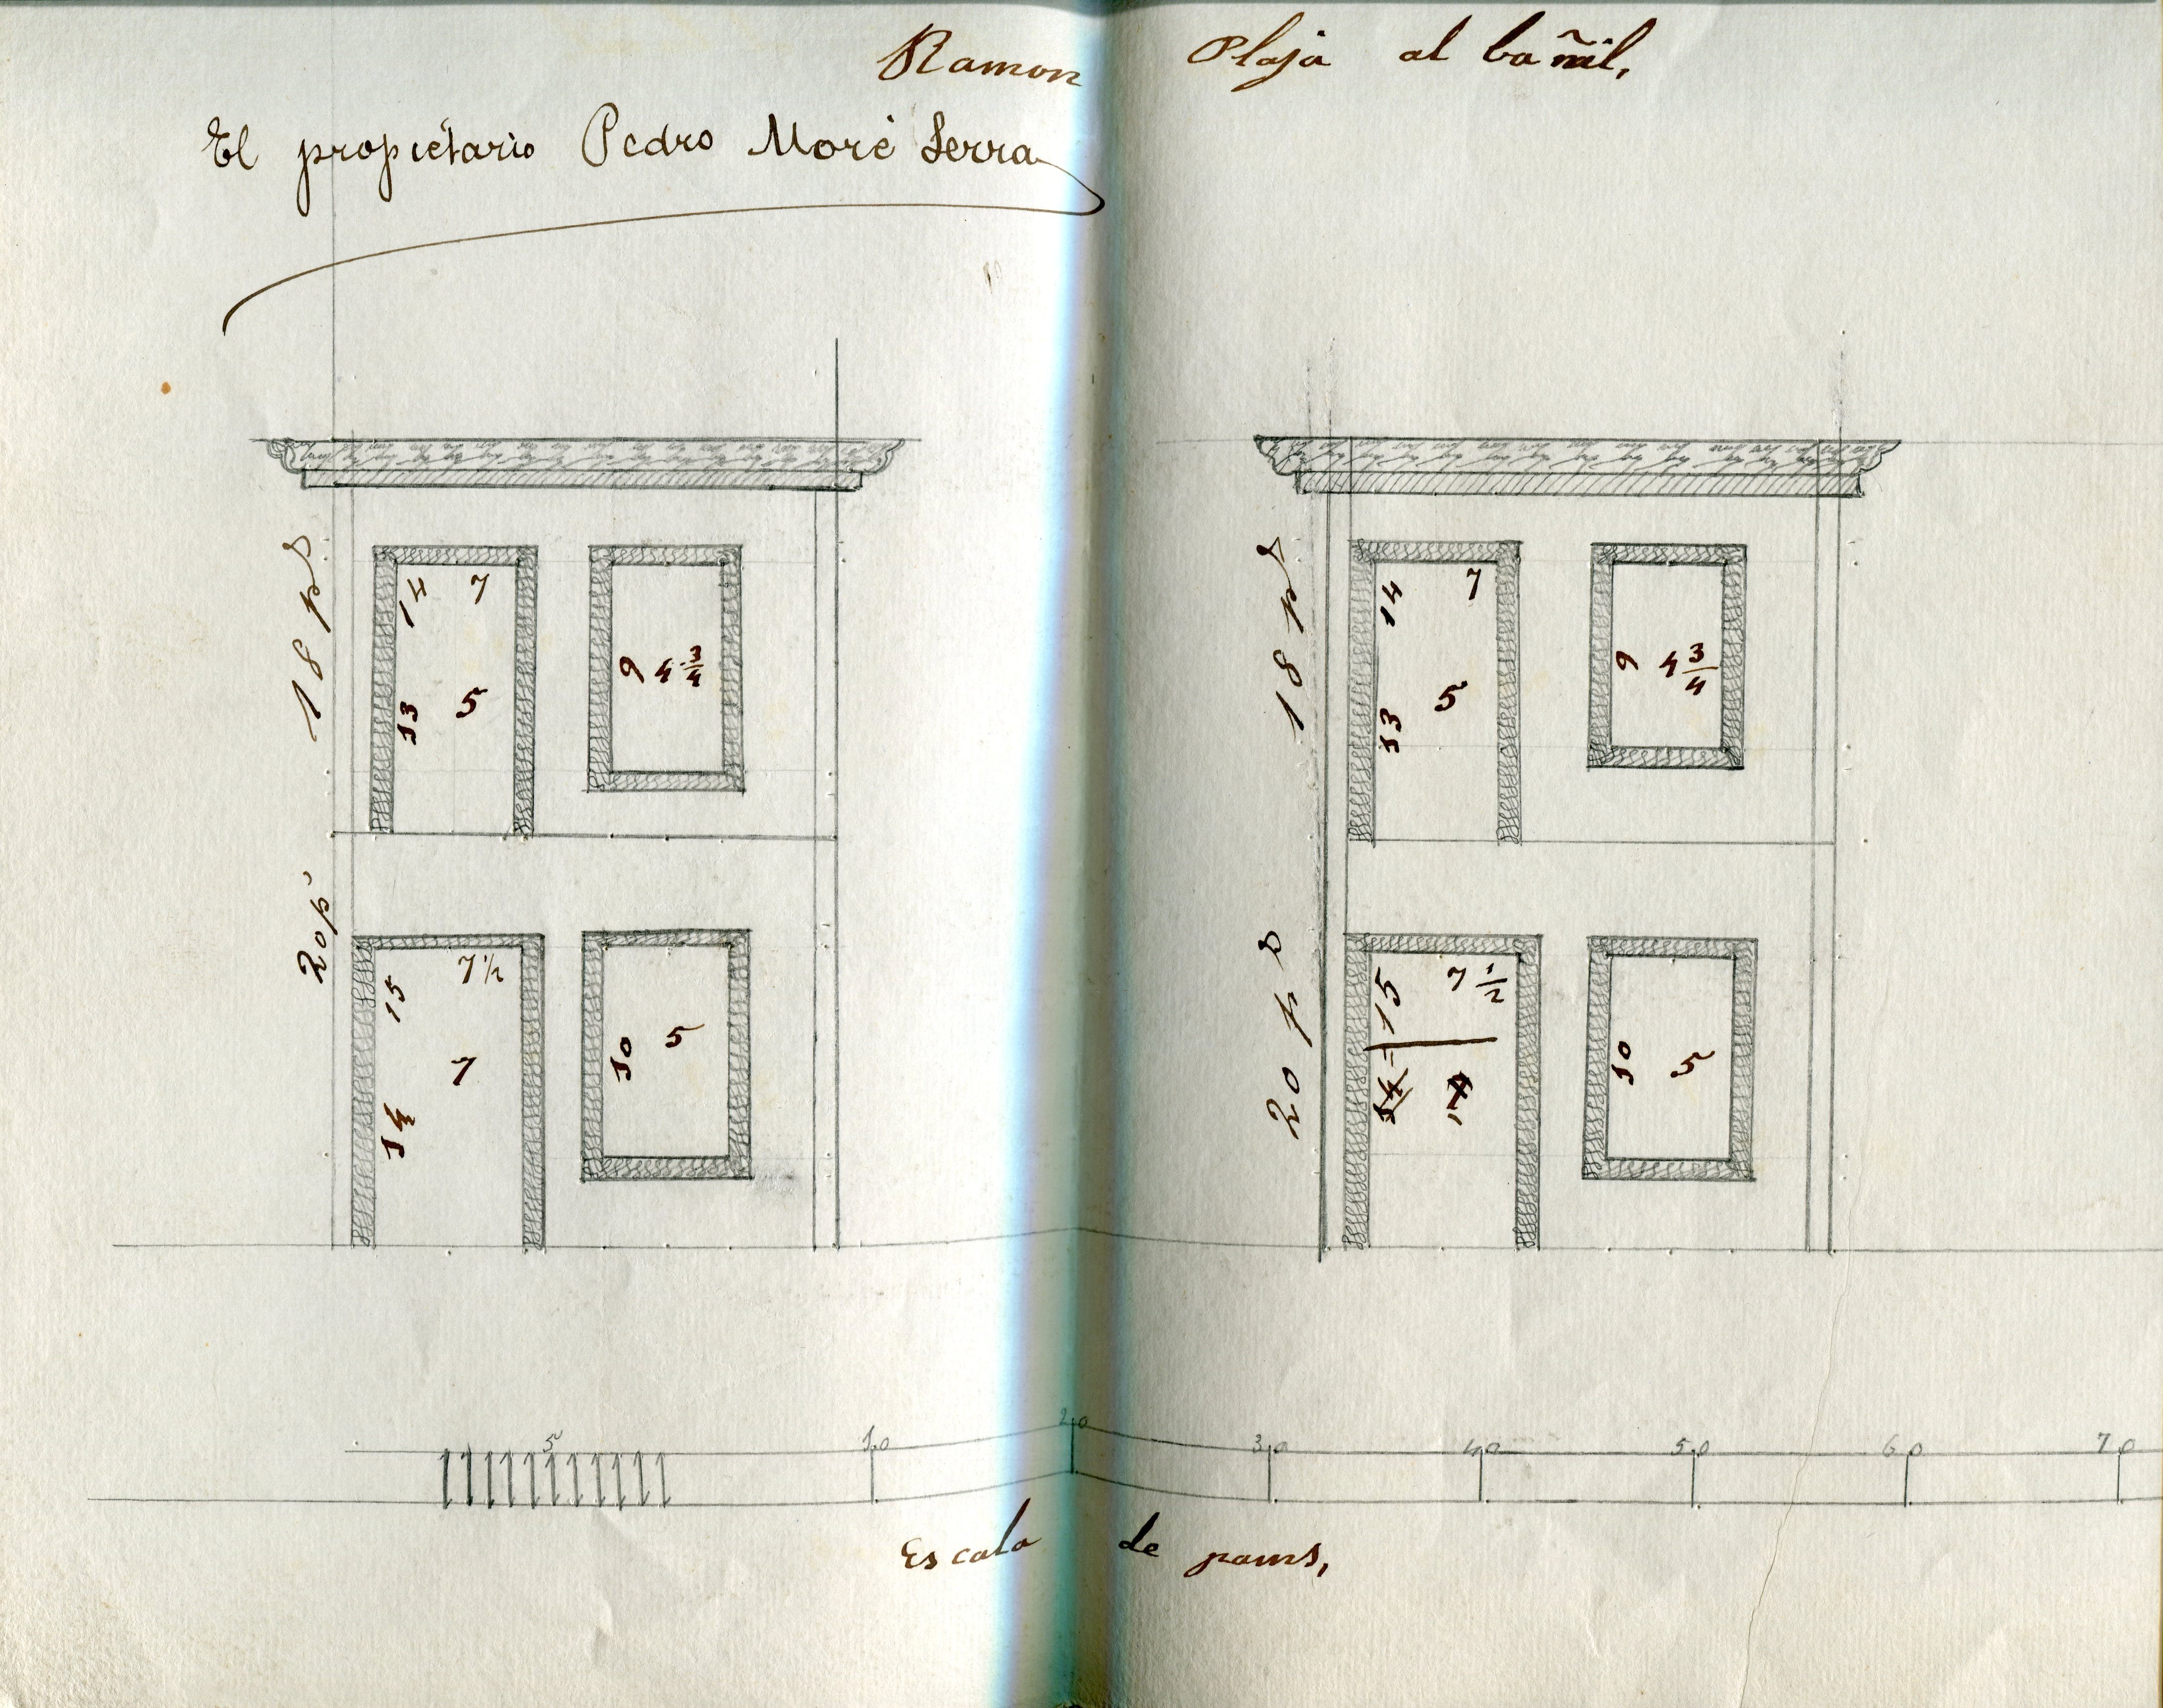 Ramon Plaja al bañil,
El propietario Pedro Moré Serra
18 ps
14 7
13 5
9 4 3/4
20 ps
15 7 1/2
7
14
10 5
18 ps
14 7
13 5
9 4 3/4
20 ps
15 7 1/2
14
10 5
5 10 20 30 40 50 60 70
Escala de pams,